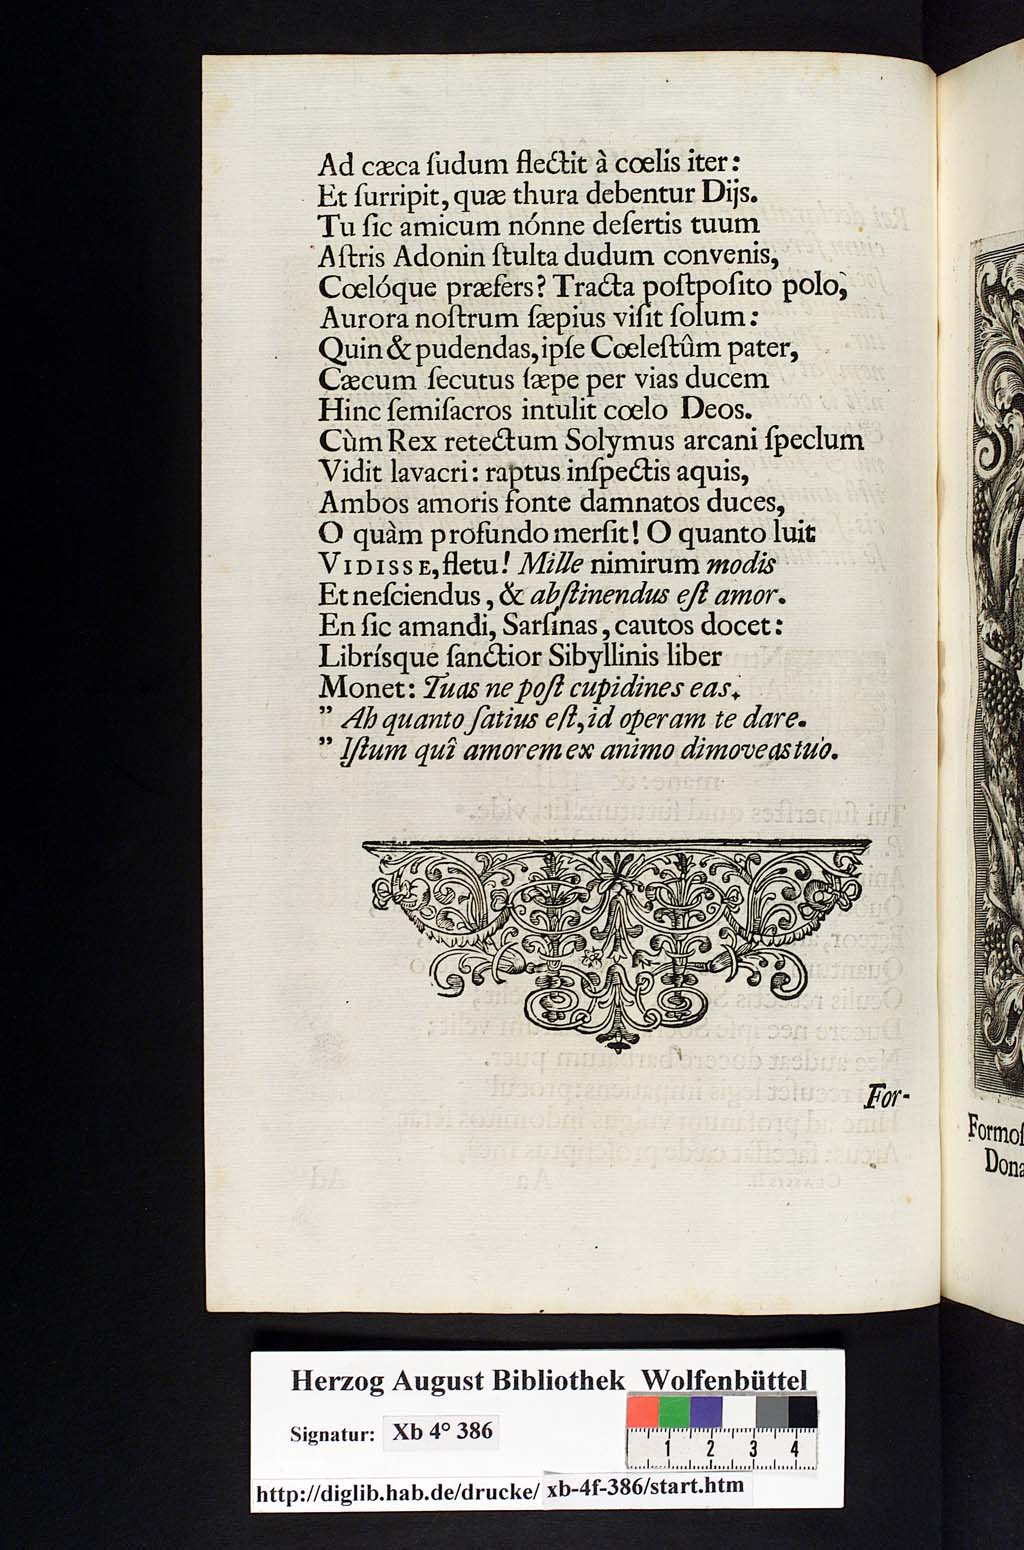 Ad cæca ſudum flectit à cœlis iter:
Et ſurripit, quæ thura debentur Dijs.
Tu ſic amicum nónne deſertis tuum
Aſtris Adonin ſtulta dudum convenis,
Cœlóque præfers? Tracta poſtpoſito polo,
Aurora noſtrum ſæpius viſit ſolum:
Quin & pudendas, ipſe Cœleſtûm pater,
Cæcum ſecutus ſæpe per vias ducem
Hinc ſemiſacros intulit cœlo Deos.
Cùm Rex retectum Solymus arcani ſpeclum
Vidit lavacri: raptus inſpectis aquis,
Ambos amoris fonte damnatos duces,
O quàm profundo merſit! O quanto luit
VIDISSE, fletu! Mille nimirum modis
Et neſciendus, & abſtinendus eſt amor.
En ſic amandi, Sarſinas, cautos docet:
Librísque ſanctior Sibyllinis liber
Monet: Tuas ne poſt cupidines eas.
” Ah quanto ſatius eſt, id operam te dare.
” Iſtum quî amorem ex animo dimoveas tuo.
For-
Formoſ
Dona
Herzog August Bibliothek Wolfenbüttel
Signatur: Xb 4° 386
1 2 3 4
http://diglib.hab.de/drucke/ xb-4f-386/start.htm